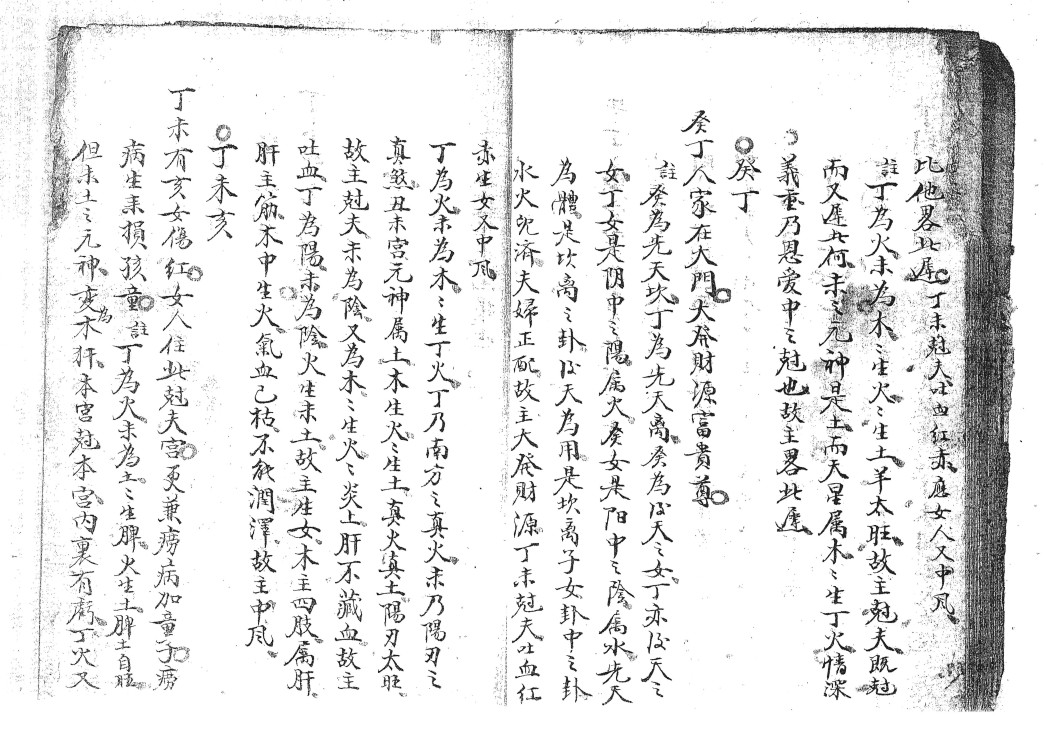 比他畧此遲丁未尅夫吐血紅赤應女人又中風
註丁為火未為木々生火々生土羊太旺故主尅夫既尅
而又遲此何未之元神是土而天星属木々生丁火情深
義重乃恩愛中之尅也故主畧此遲
癸丁
癸丁人家在大門大発財源富貴尊
註癸為先天坎丁為先天离癸為后天之女丁亦后天之
女丁女是阴中之陽属火癸女是阳中之陰属水先天
為體是坎离之卦后天為用是坎离子女卦中之卦
水火既濟夫婦正配故主大発財源丁未尅夫吐血紅
赤生女又中风
丁為火未為木々生丁火丁乃南方之真火未乃陽刃之
真煞丑未宮元神属土木生火々生土真火真土陽刃太旺
故主尅夫未為陰又為木々生火々炎土肝不藏血故主
吐血丁為陽未為陰火生未土故主生女木主四肢属肝
肝主筋木中生火氣血已枯不能潤澤故主中风
丁未亥
丁未有亥女傷紅女人住此尅夫宮更兼癆病加童子癆
病生来損孩童註丁為火未為土々生脾火生土脾土自旺
但未土之元神変為木肝本宮尅本宮内裏有虧丁火又